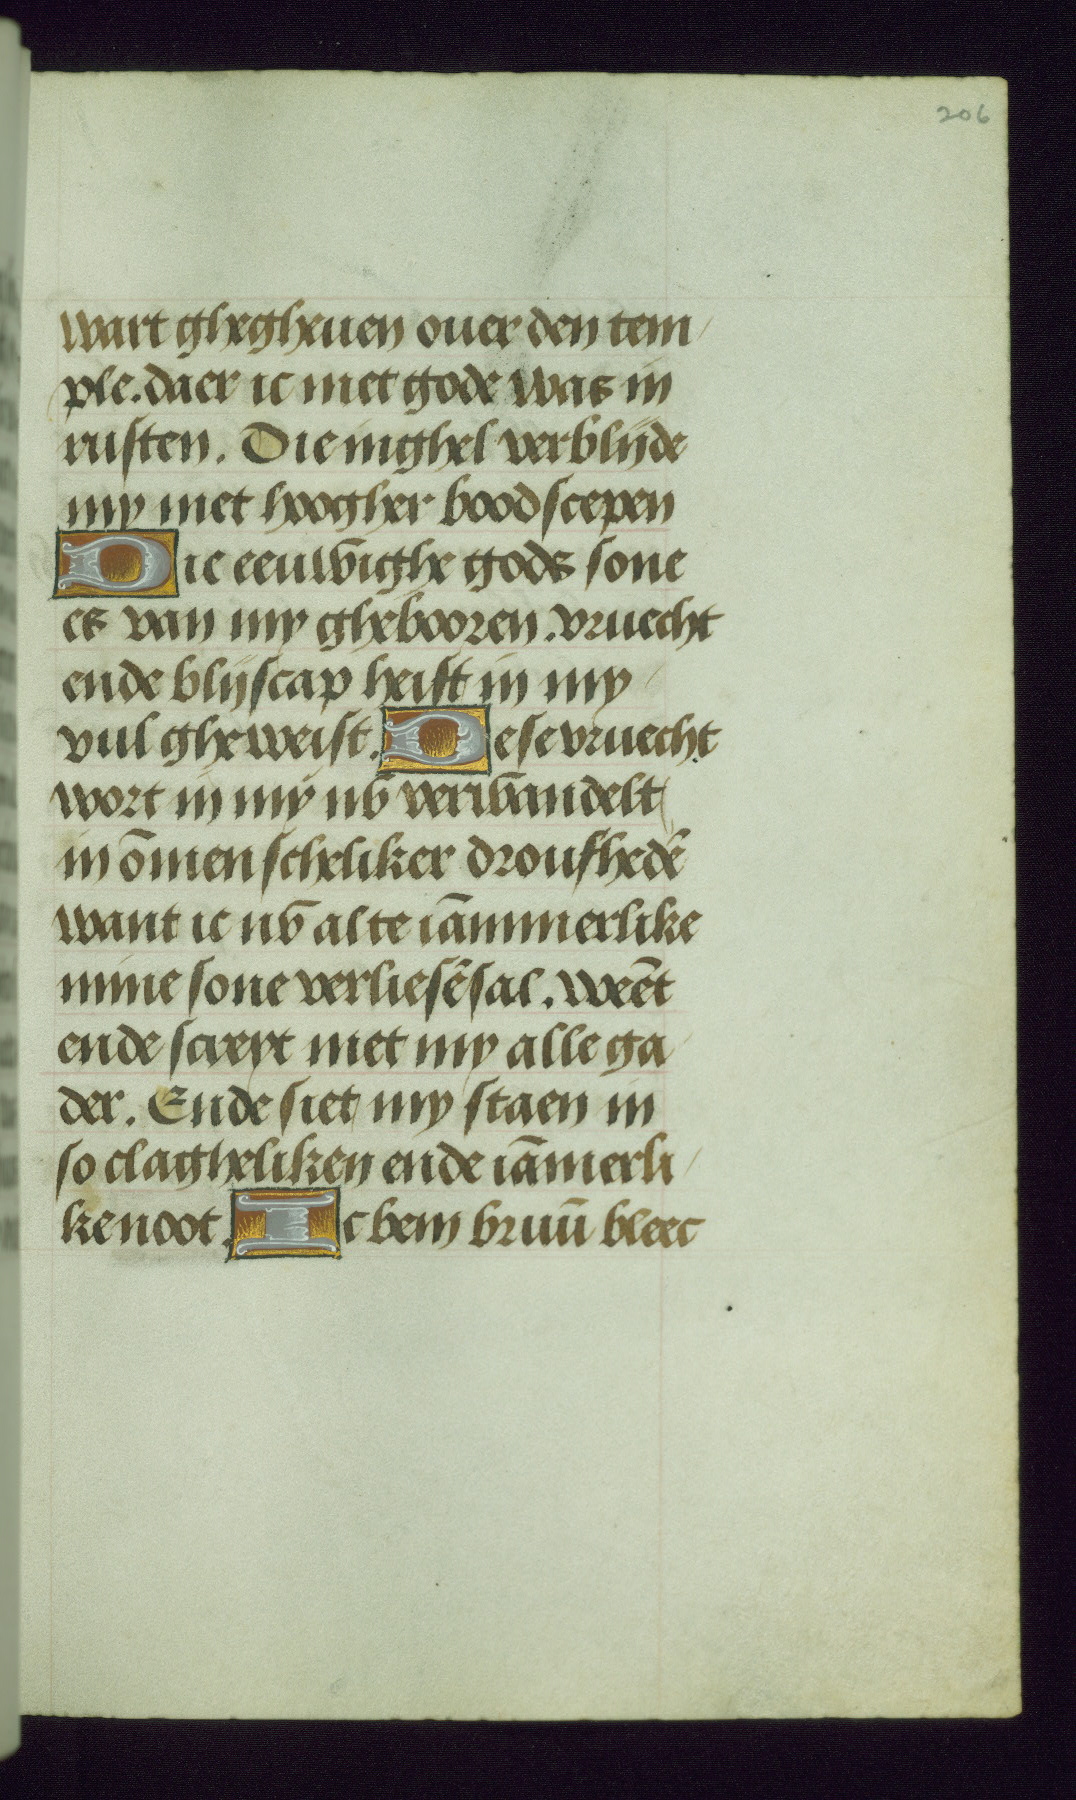 206
wart ghegheuen ouer den tem
ple. daer ic met gode was in
rusten. Die inghel verblijde
my met hoogher boodscepen
Die eeuwighe gods sone
es van my ghebooren. vruecht
ende blijscap heift in my
vul gheweist. Dese vruecht
wort in my nv verwandelt
in ōmenscheliker droufhedē
want ic nv al te iāmmerlike
mine sone verliesē sal. weēt
ende screyt met my alle ga
der. Ende siet my staen in
so clagheliken ende iāmerli
ke noot. Ic bem bruū bleec